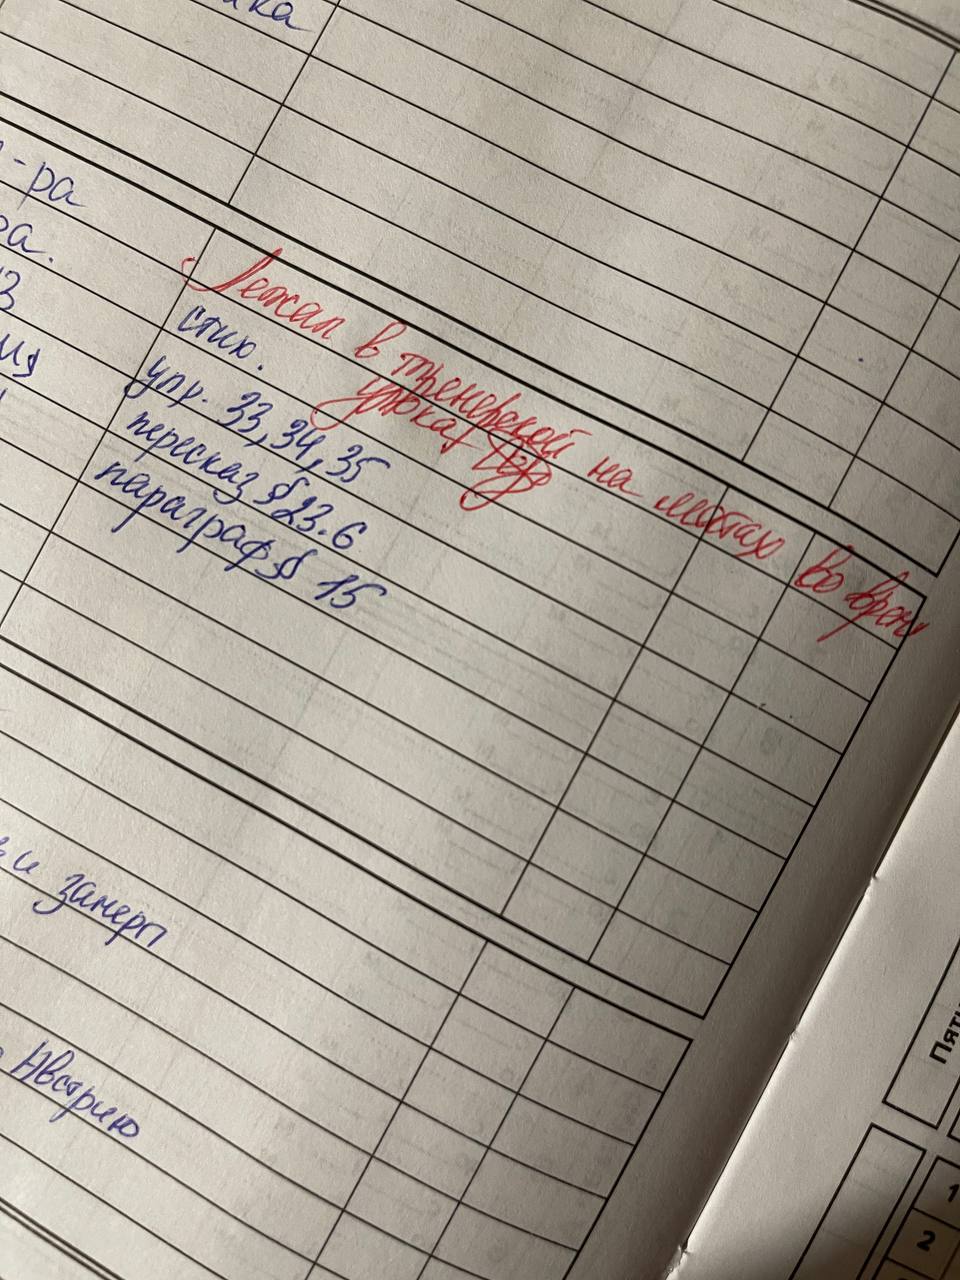 ка
-ра
ра.
Лежал в тренерской на матах во врем
урока
стих.
упр. 33, 34, 35
пересказ § 23.6
параграф § 15
и замерг
Австрию
Пятн
1
2